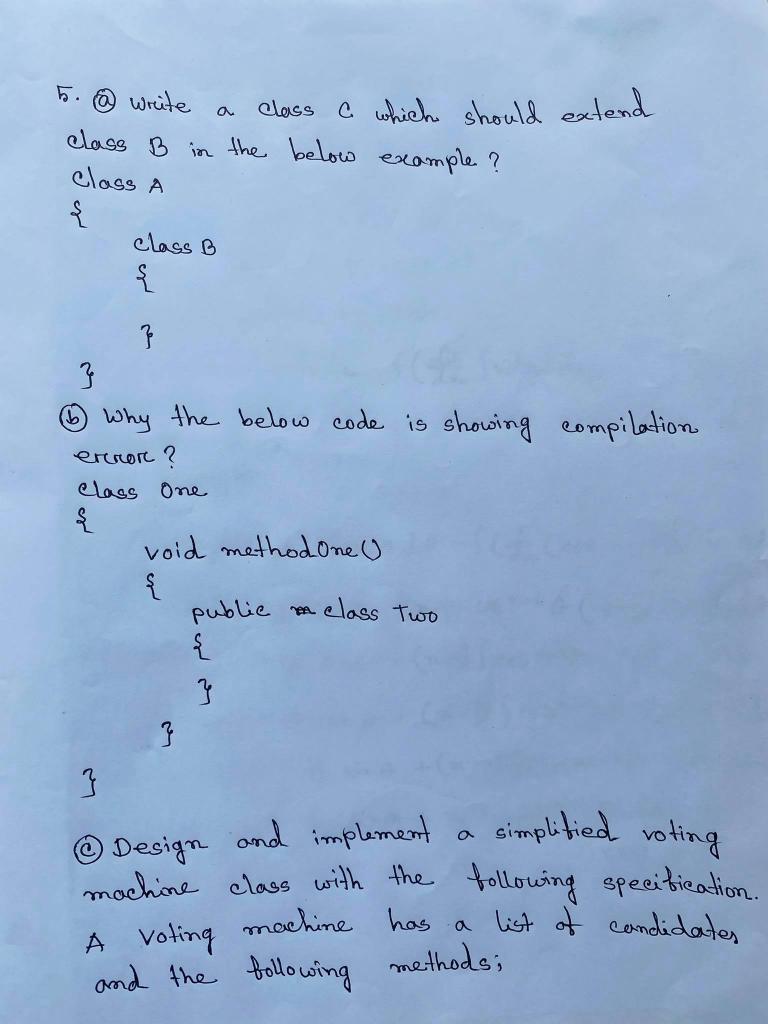 5. ⓐ Write a class C which should extend
class B in the below example?
Class A
{
class B
{
}
}
ⓑ Why the below code is showing compilation
error?
class One
{
void methodOne()
{
public class Two
{
}
}
}
ⓒ Design and implement a simplified voting
machine class with the following specification.
A voting machine has a list of candidates
and the following methods;